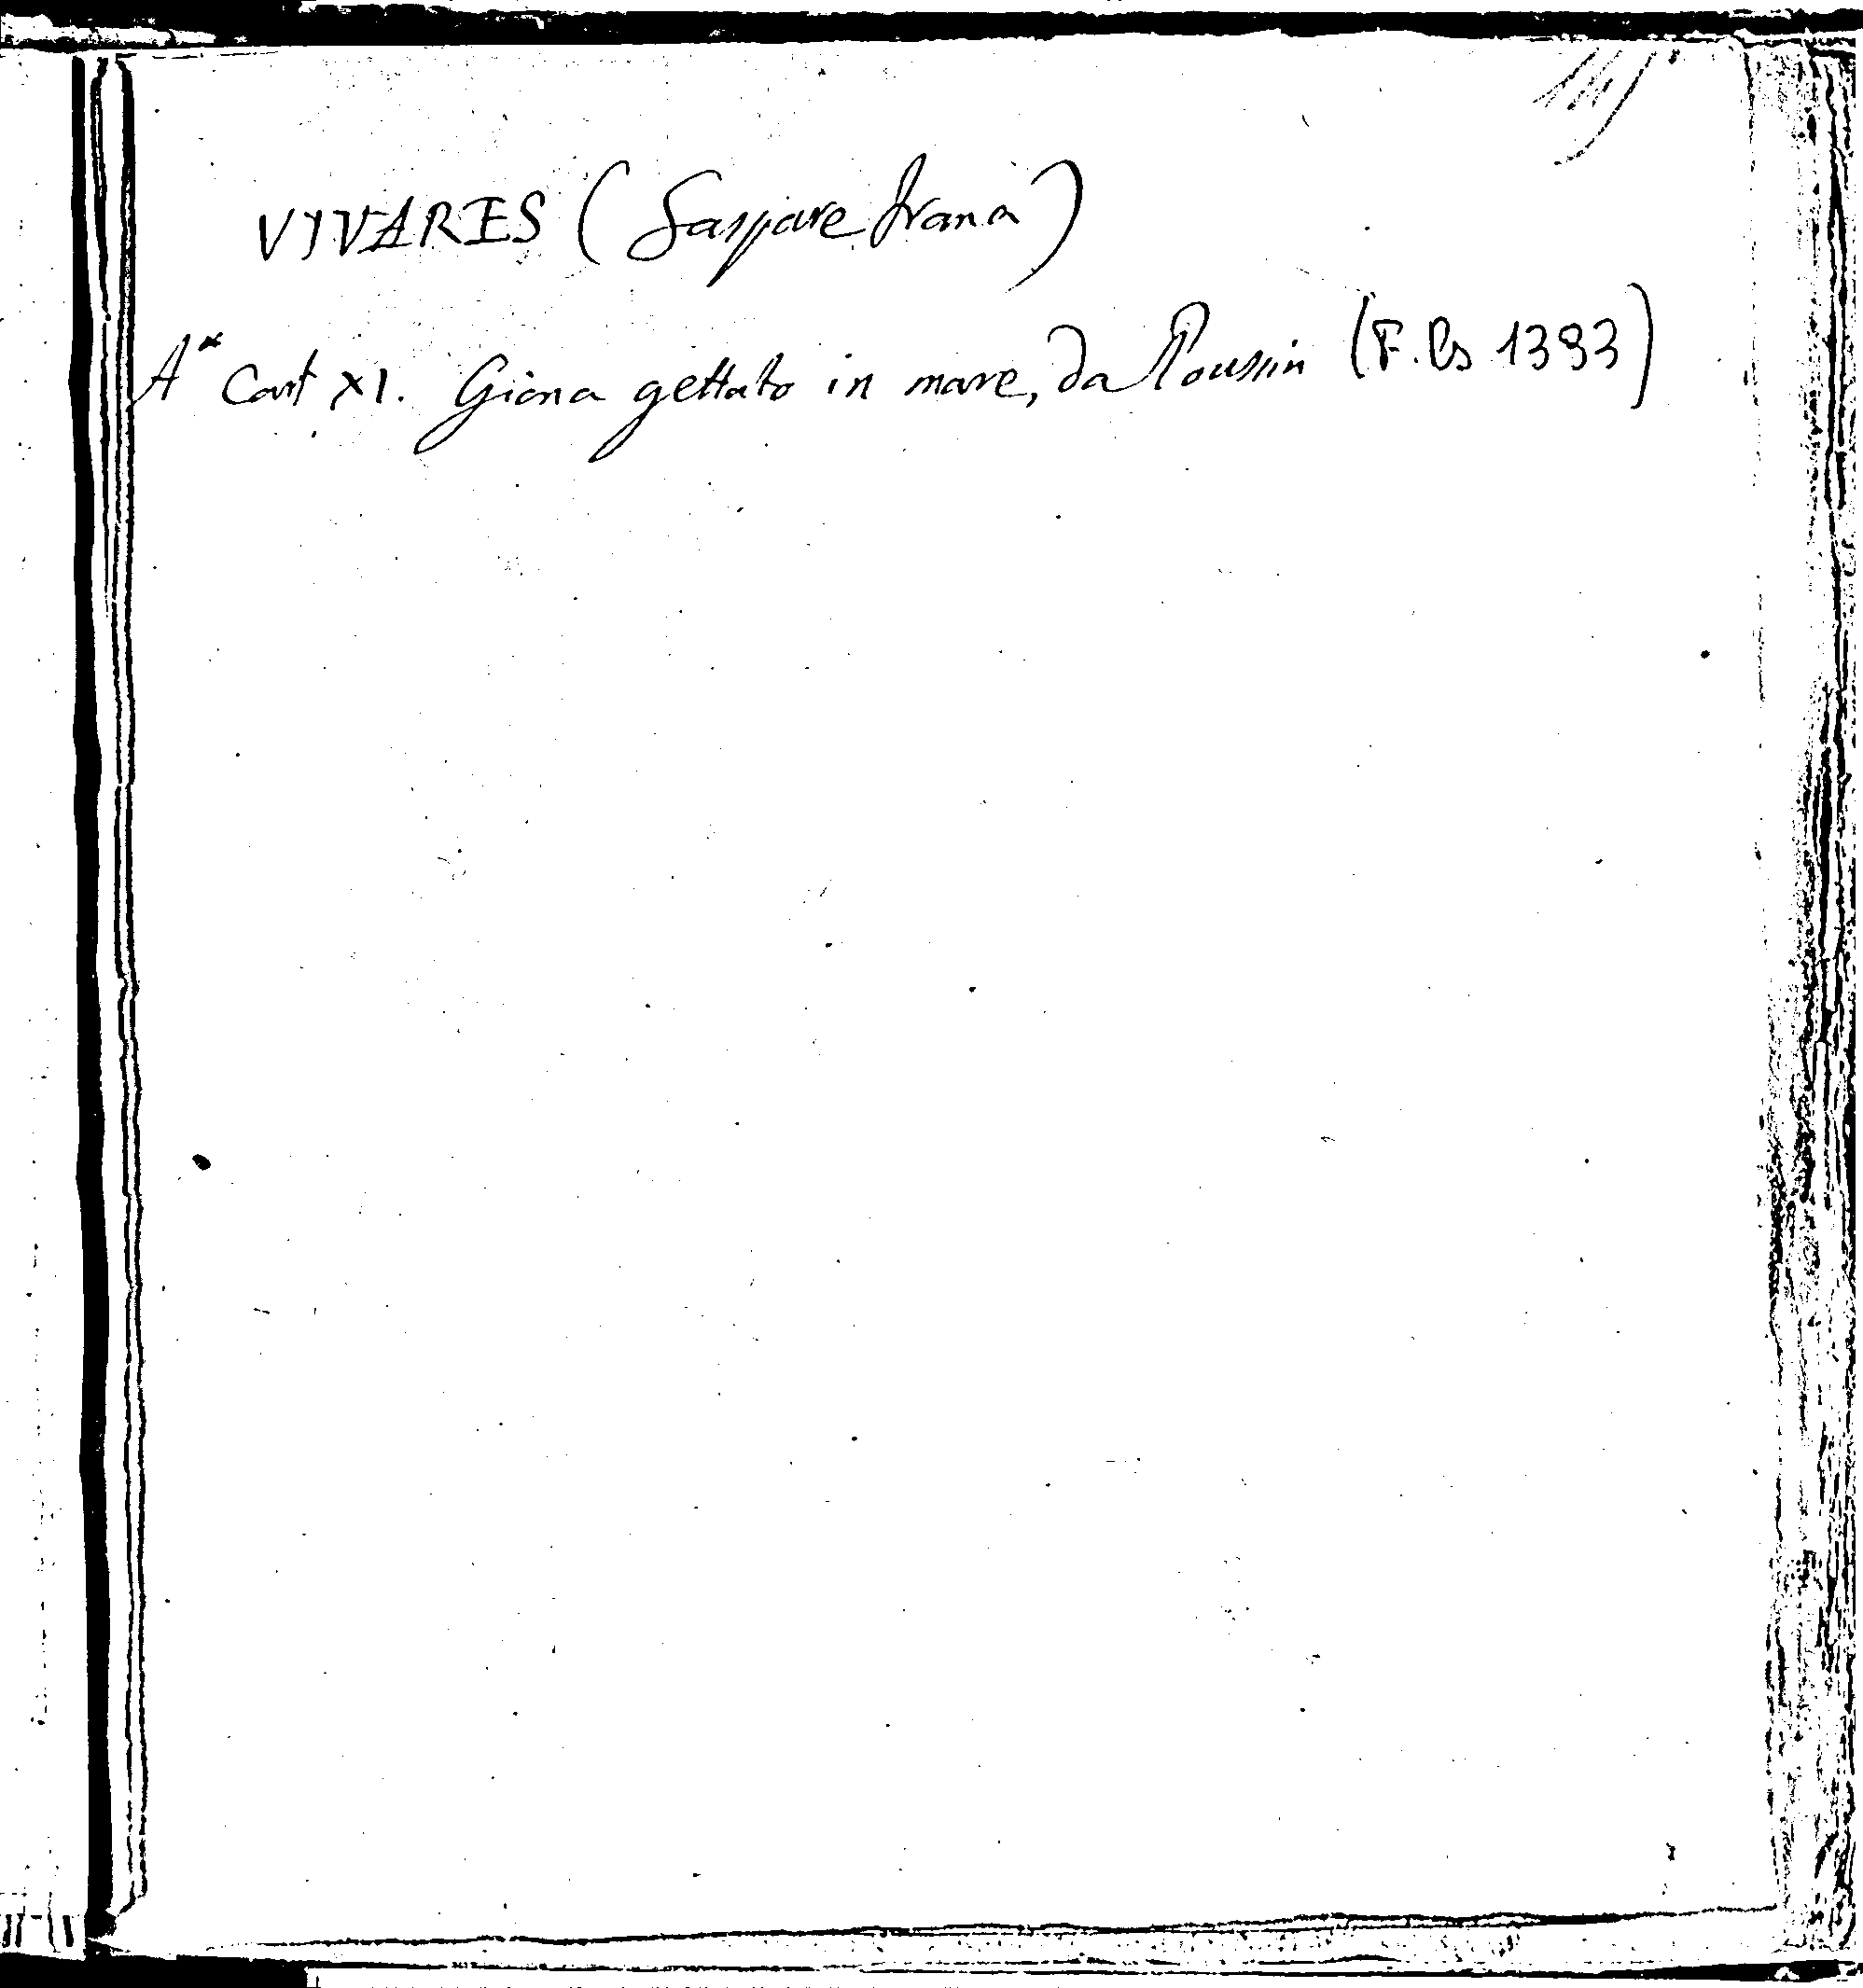 VIVARES (Gaspare frana)
A* Cart XI. Giona gettato in mare, da Poussin (F. Ps 1393)